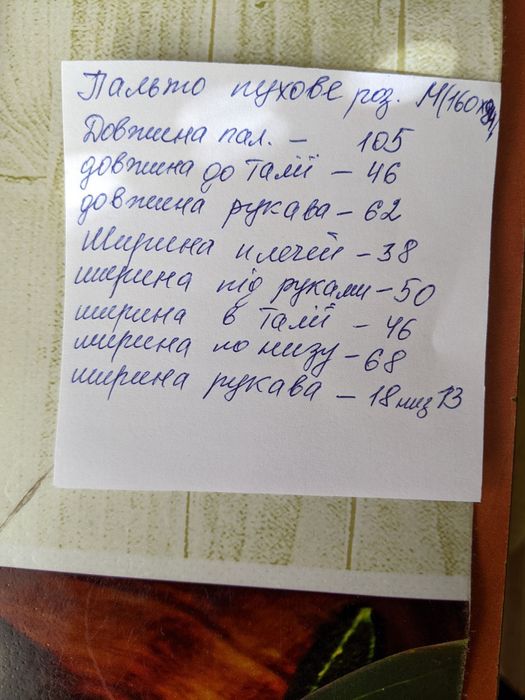 Пальто пухове роз. М(160х
Довжина пал. – 105
довжина до талії – 46
довжина рукава – 62
Ширина плечей – 38
ширина під руками – 50
ширина в талії – 46
ширина по низу – 68
ширина рукава – 18 низ 13